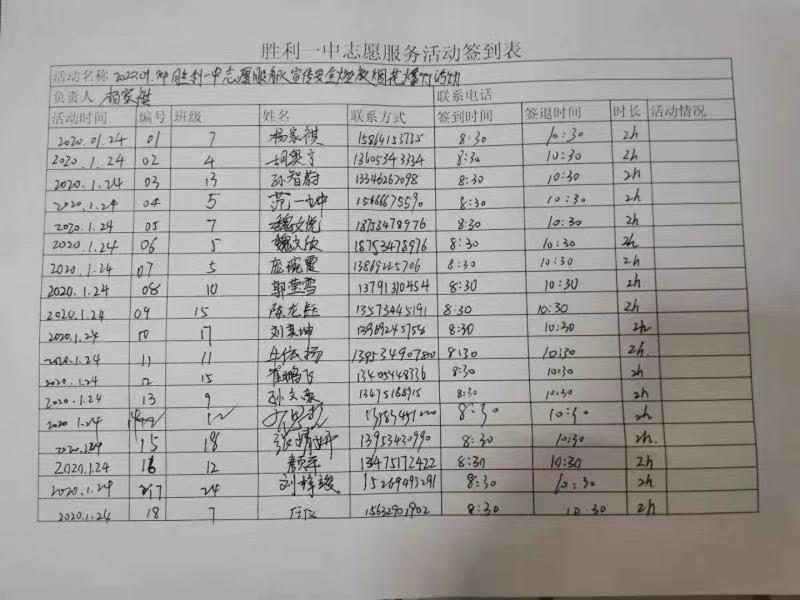 胜利一中志愿服务活动签到表
活动名称 2020.01.24胜利一中志愿服务队宣传安全燃放烟花爆竹活动
负责人 杨家祺 联系电话
活动时间 编号 班级 姓名 联系方式 签到时间 签退时间 时长 活动情况
2020.01.24 01 7 杨家祺 15864153735 8:30 10:30 2h
2020.1.24 02 4 8:30 10:30 2h
2020.1.24 03 13 孙智蔚 13346267098 8:30 10:30 2h
2020.1.24 04 5 范一坤 8:30 10:30 2h
2020.1.24 05 7 魏文悦 18753478976 8:30 10:30 2h
2020.1.24 06 5 魏文欣 18753478976 8:30 10:30 2h
2020.1.24 07 5 13869225706 8:30 10:30 2h
2020.1.24 08 10 郭莹雪 13791310454 8:30 10:30 2h
2020.1.24 09 15 陈龙 13573445191 8:30 10:30 2h
2020.1.24 10 17 刘奕坤 8:30 10:30 2h
2020.1.24 11 11 牛传扬 13953490780 8:30 10:30 2h.
2020.1.24 12 15 崔鹏飞 13405448336 8:30 10:30 2h
2020.1.24 13 9 孙文豪 13475168915 8:30 10:30 2h
2020 1.24 14 12 8:30 10:30 2h
2020.1.24 15 18 张婧轩 13953430990 8:30 10:30 2h.
2020.1.24 16 12 颜宇 13475172422 8:30 10:30 2h
2020.1.24 17 24 刘梓骏 15269493291 8:30 10:30 2h
2020.1.24 18 7 任仪 15632901902 8:30 10.30 2h